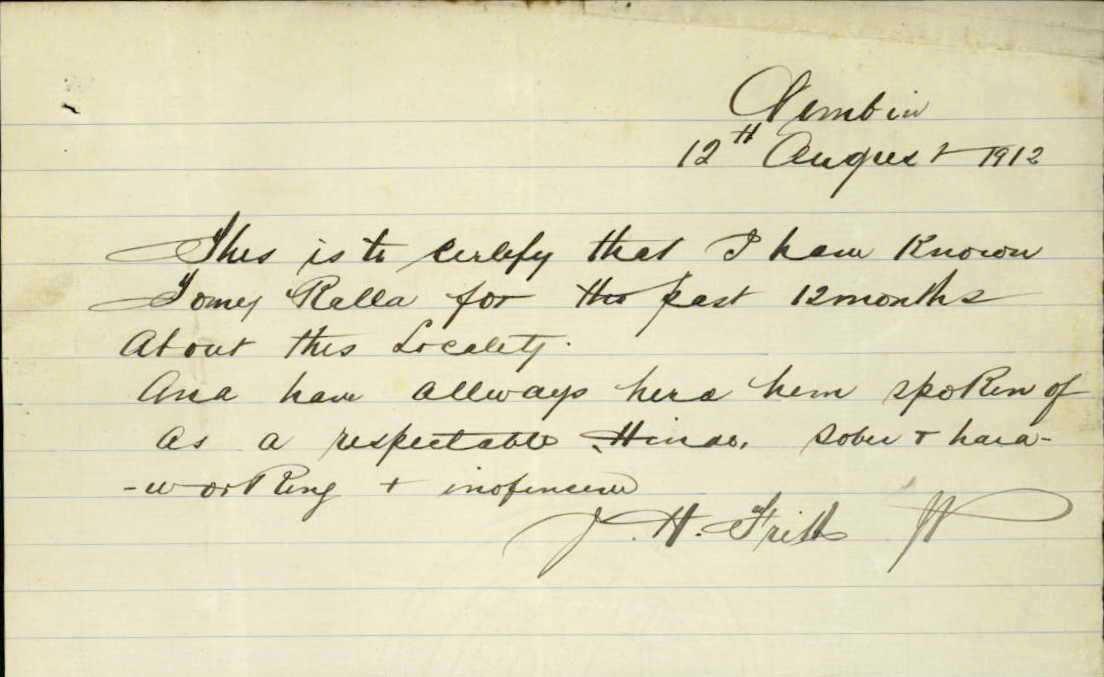 Nimbin
12th August 1912
This is to certify that I have Known
Tomey Ralla for the past 12 months
About this Locality.
And have allways herd hem spoken of
As a respectable Hindo, sober & hard-
-working & inofensive
J. H. Frith JP